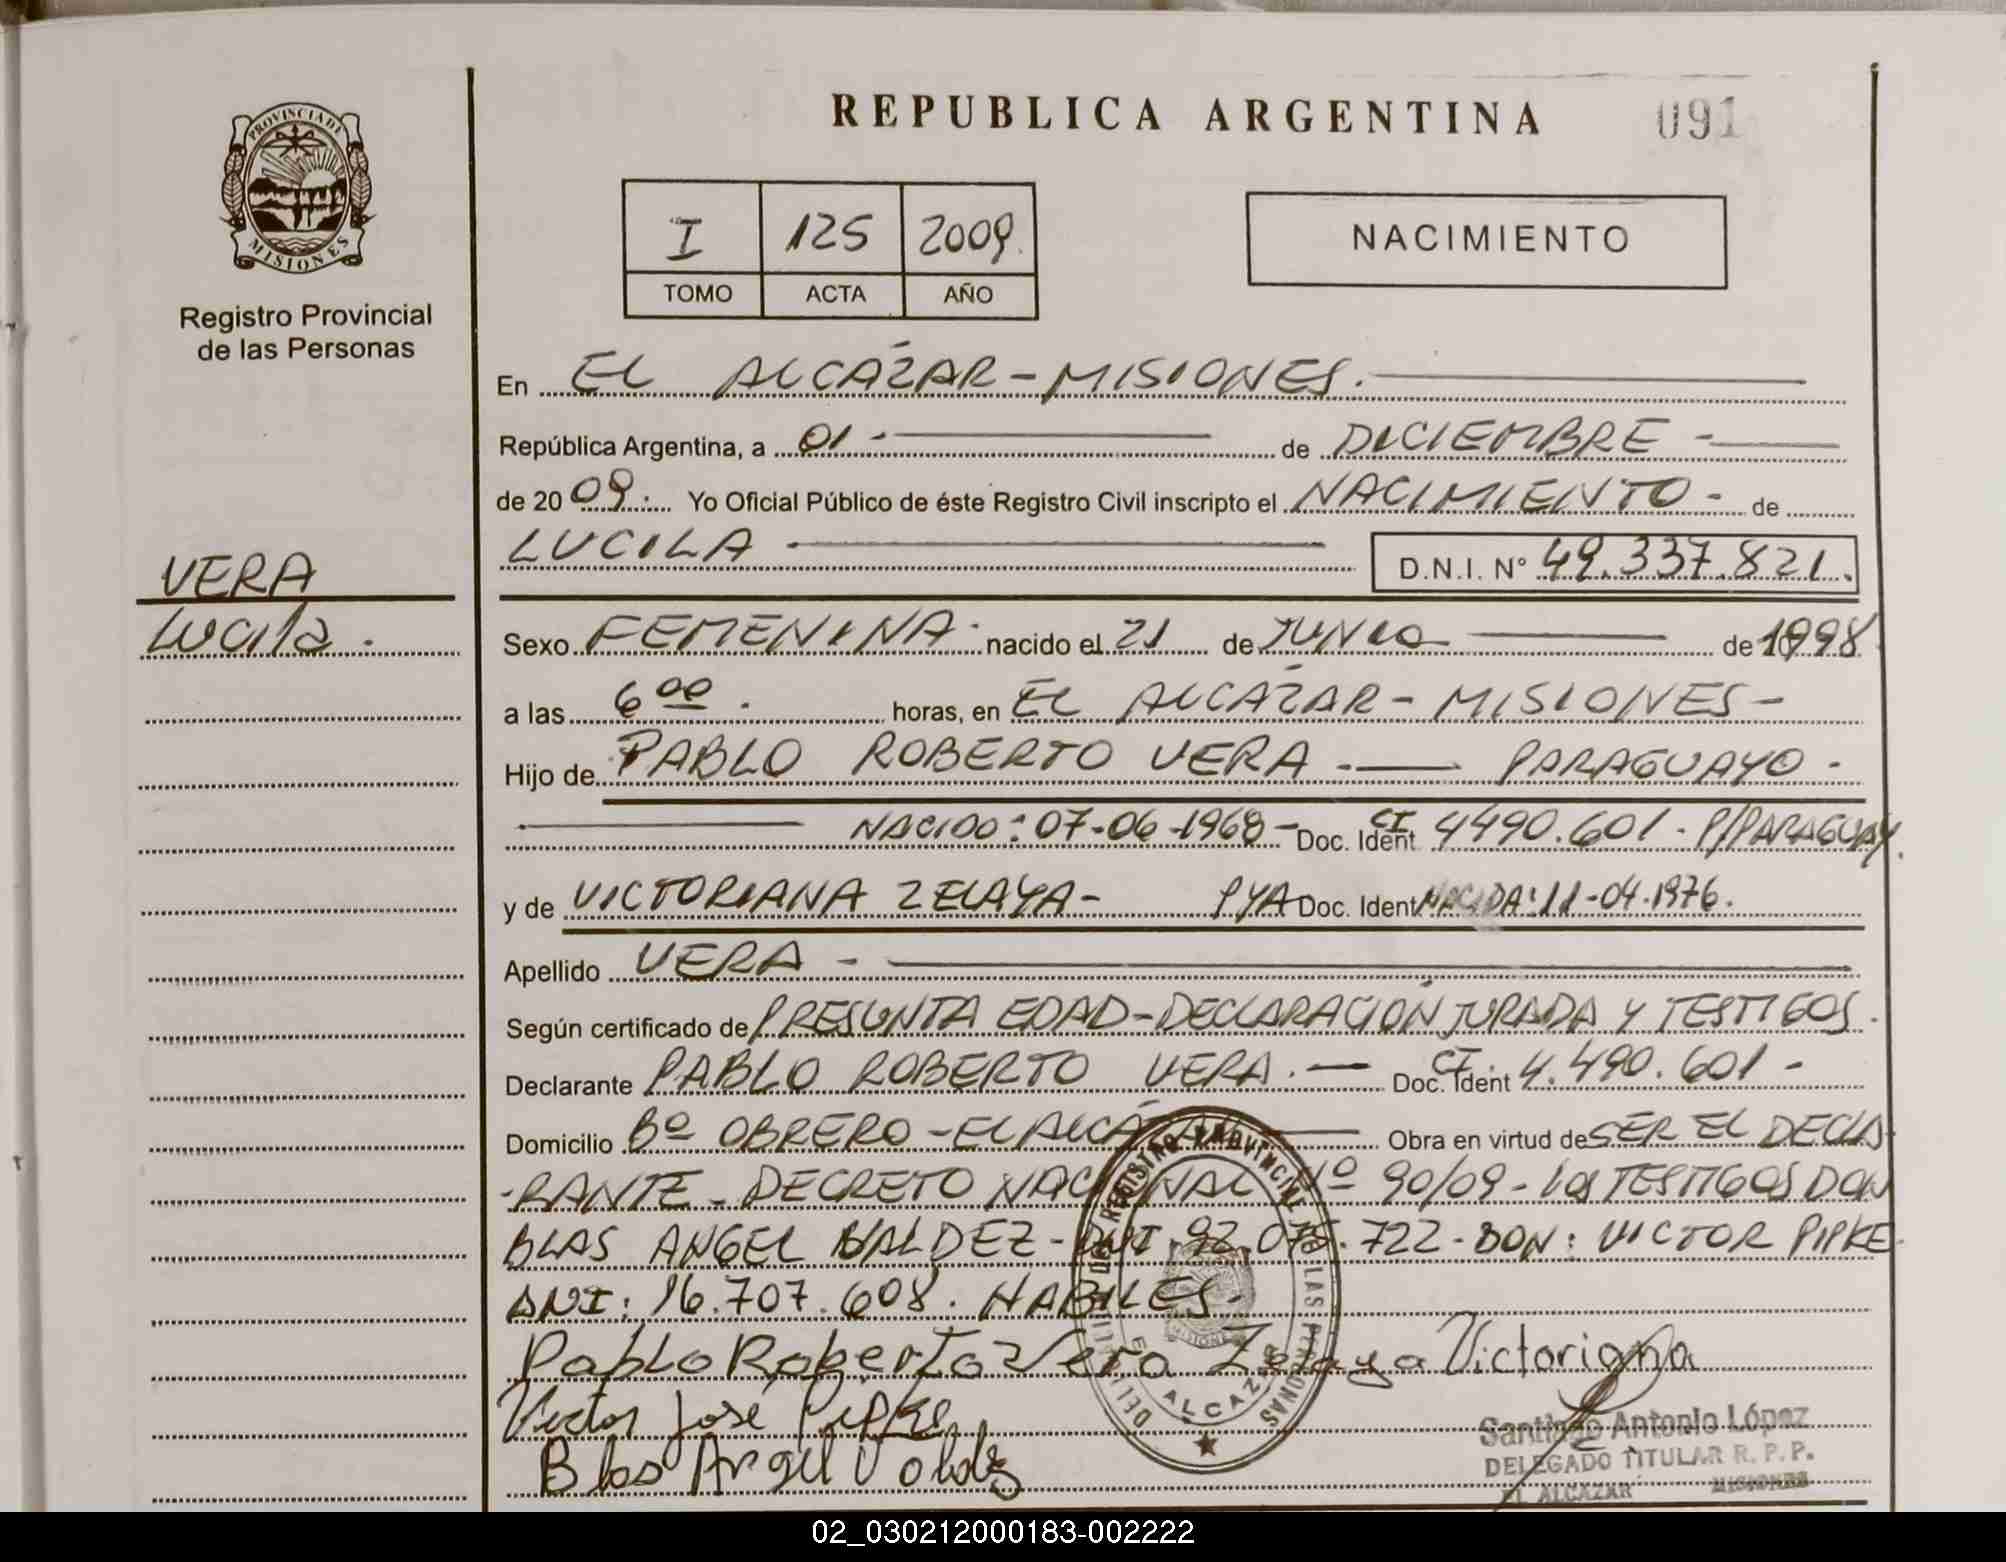 REPUBLICA ARGENTINA 091
PROVINCIA DE
MISIONES
Registro Provincial
de las Personas
I 125 2009.
TOMO ACTA AÑO
NACIMIENTO
En EL ALCÁZAR - MISIONES.
República Argentina, a 01 - de DICIEMBRE -
de 2009. Yo Oficial Público de éste Registro Civil inscripto el NACIMIENTO - de
LUCILA D.N.I. N° 49.337.821.
VERA
Lucila.
Sexo FEMENINA. nacido el 21 de JUNIO de 1998
a las 6 00. horas, en EL ALCÁZAR - MISIONES -
Hijo de PABLO ROBERTO VERA - PARAGUAYO -
NACIDO: 07-06-1968 - Doc. Ident CI 4490.601 - P/PARAGUAY.
y de VICTORIANA ZELAYA - PYA Doc. Ident NACIDA: 11-04-1976.
Apellido VERA -
Según certificado de PRESUNTA EDAD - DECLARACIÓN JURADA Y TESTIGOS.
Declarante PABLO ROBERTO VERA. - Doc. Ident CI 4.490.601 -
Domicilio Bº OBRERO - EL ALCÁZAR Obra en virtud de SER EL DECLA-
-RANTE - DECRETO NACIONAL Nº 90/09 - LOS TESTIGOS DON
BLAS ANGEL VALDEZ - DNI - 92.075.722 - DON: VICTOR PIPKE
DNI: 16.707.608. HABILES -
Pablo Roberto Vera Zelaya Victoriana
Victor José Pipke
Blas Angel Valdez
DEL REGISTRO PROVINCIAL DE LAS PERSONAS
MISIONES
EL ALCAZAR
Santiago Antonio López
DELEGADO TITULAR R. P. P.
EL ALCAZAR MISIONES
02_030212000183-002222